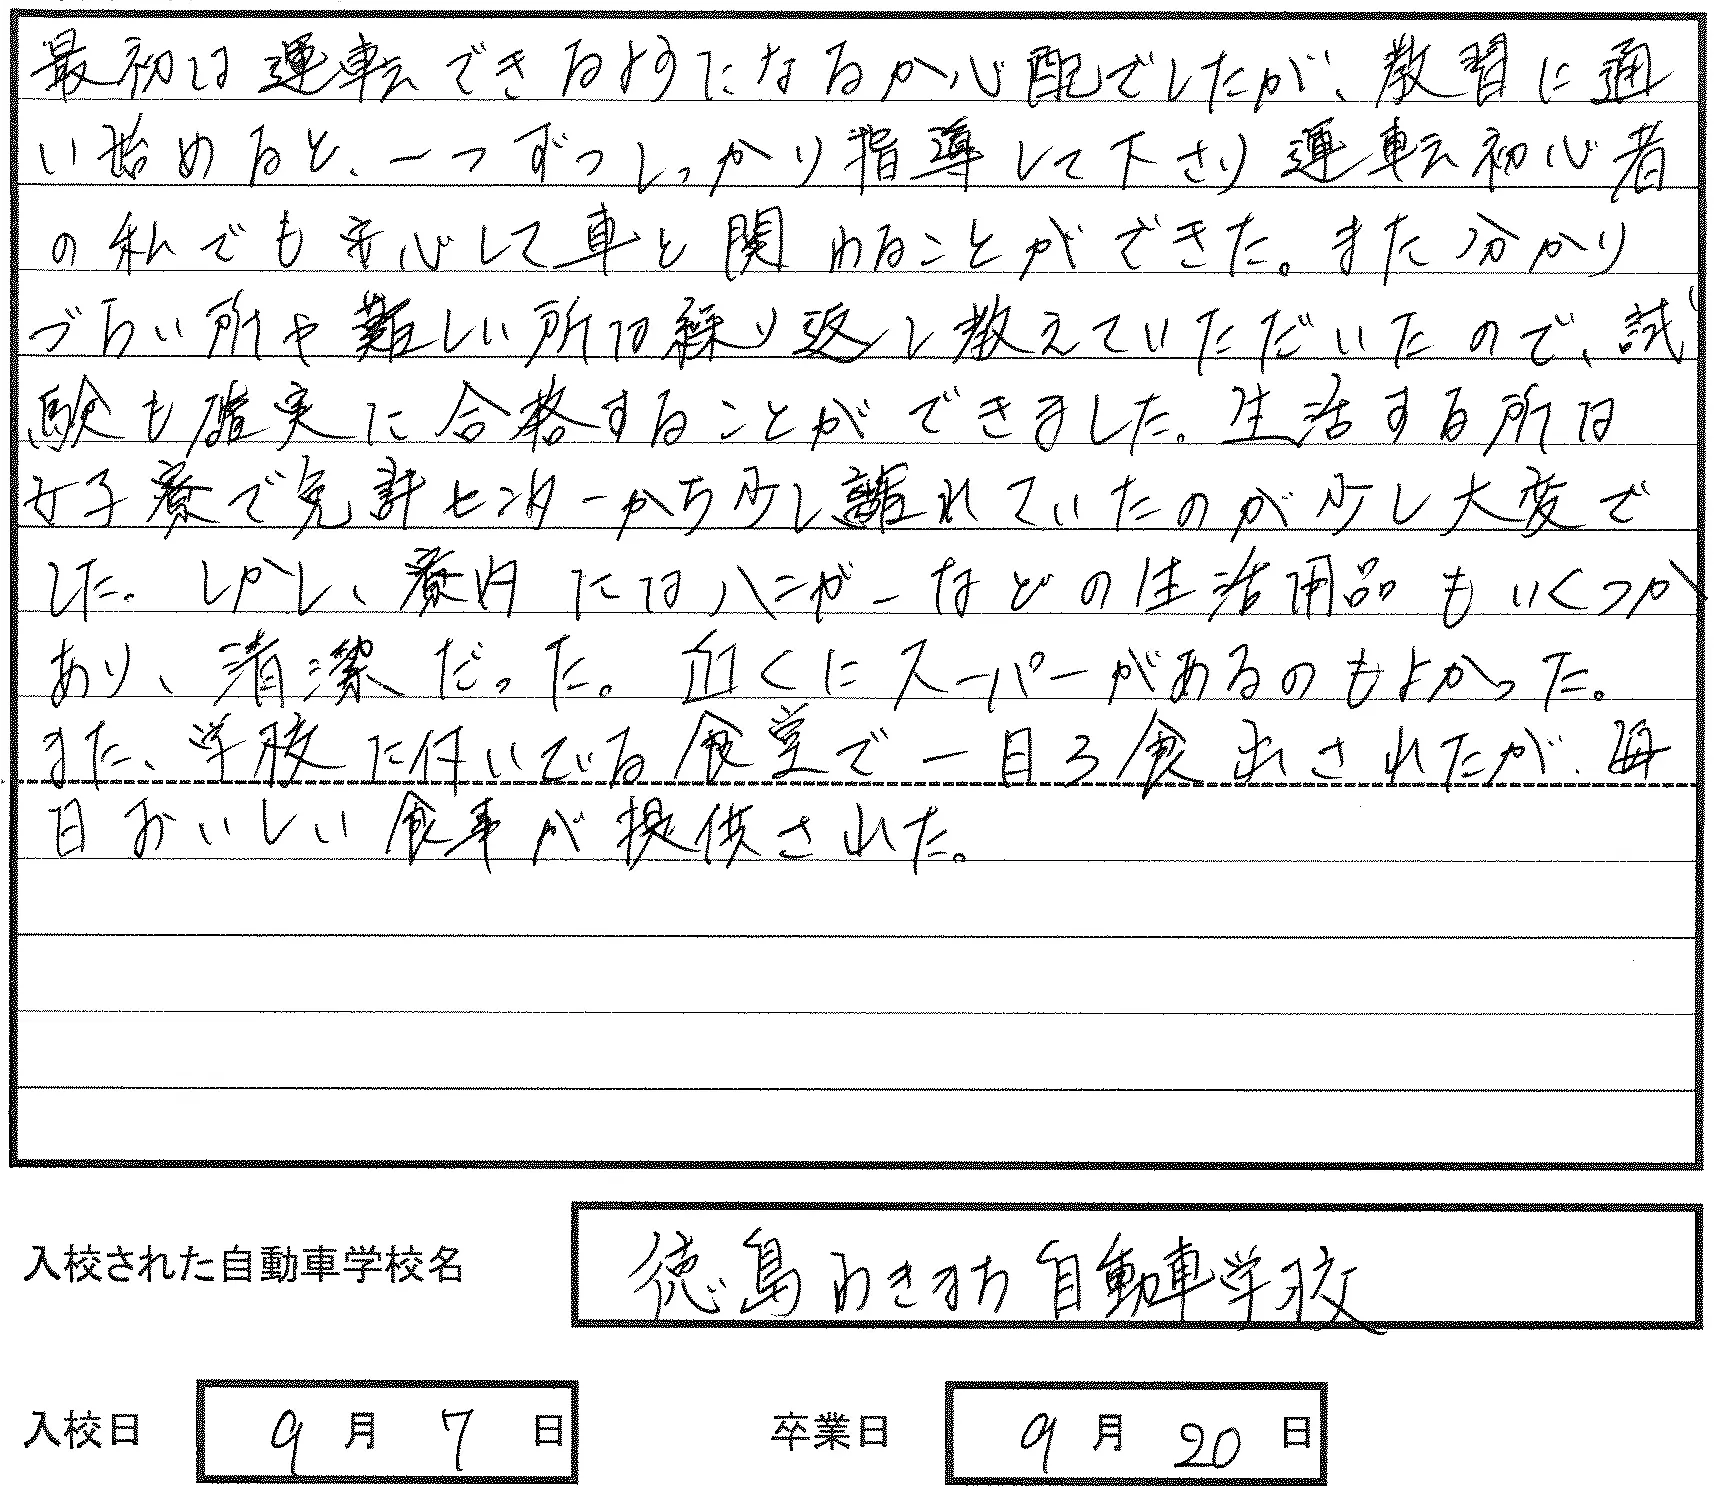 最初は運転できるようになるか心配でしたが、教習に通
い始めると、一つずつしっかり指導して下さり運転初心者
の私でも安心して車と関わることができた。また分かり
づらい所や難しい所は繰り返し教えていただいたので、試
験も確実に合格することができました。生活する所は
女子寮で免許センターから少し離れていたのが少し大変で
した。しかし、寮内にはハンガーなどの生活用品もいくつか
あり、清潔だった。近くにスーパーがあるのもよかった。
また、学校に付いている食堂で一日3食出されたが、毎
日おいしい食事が提供された。
入校された自動車学校名 徳島わきまち自動車学校
入校日 9月7日 卒業日 9月20日